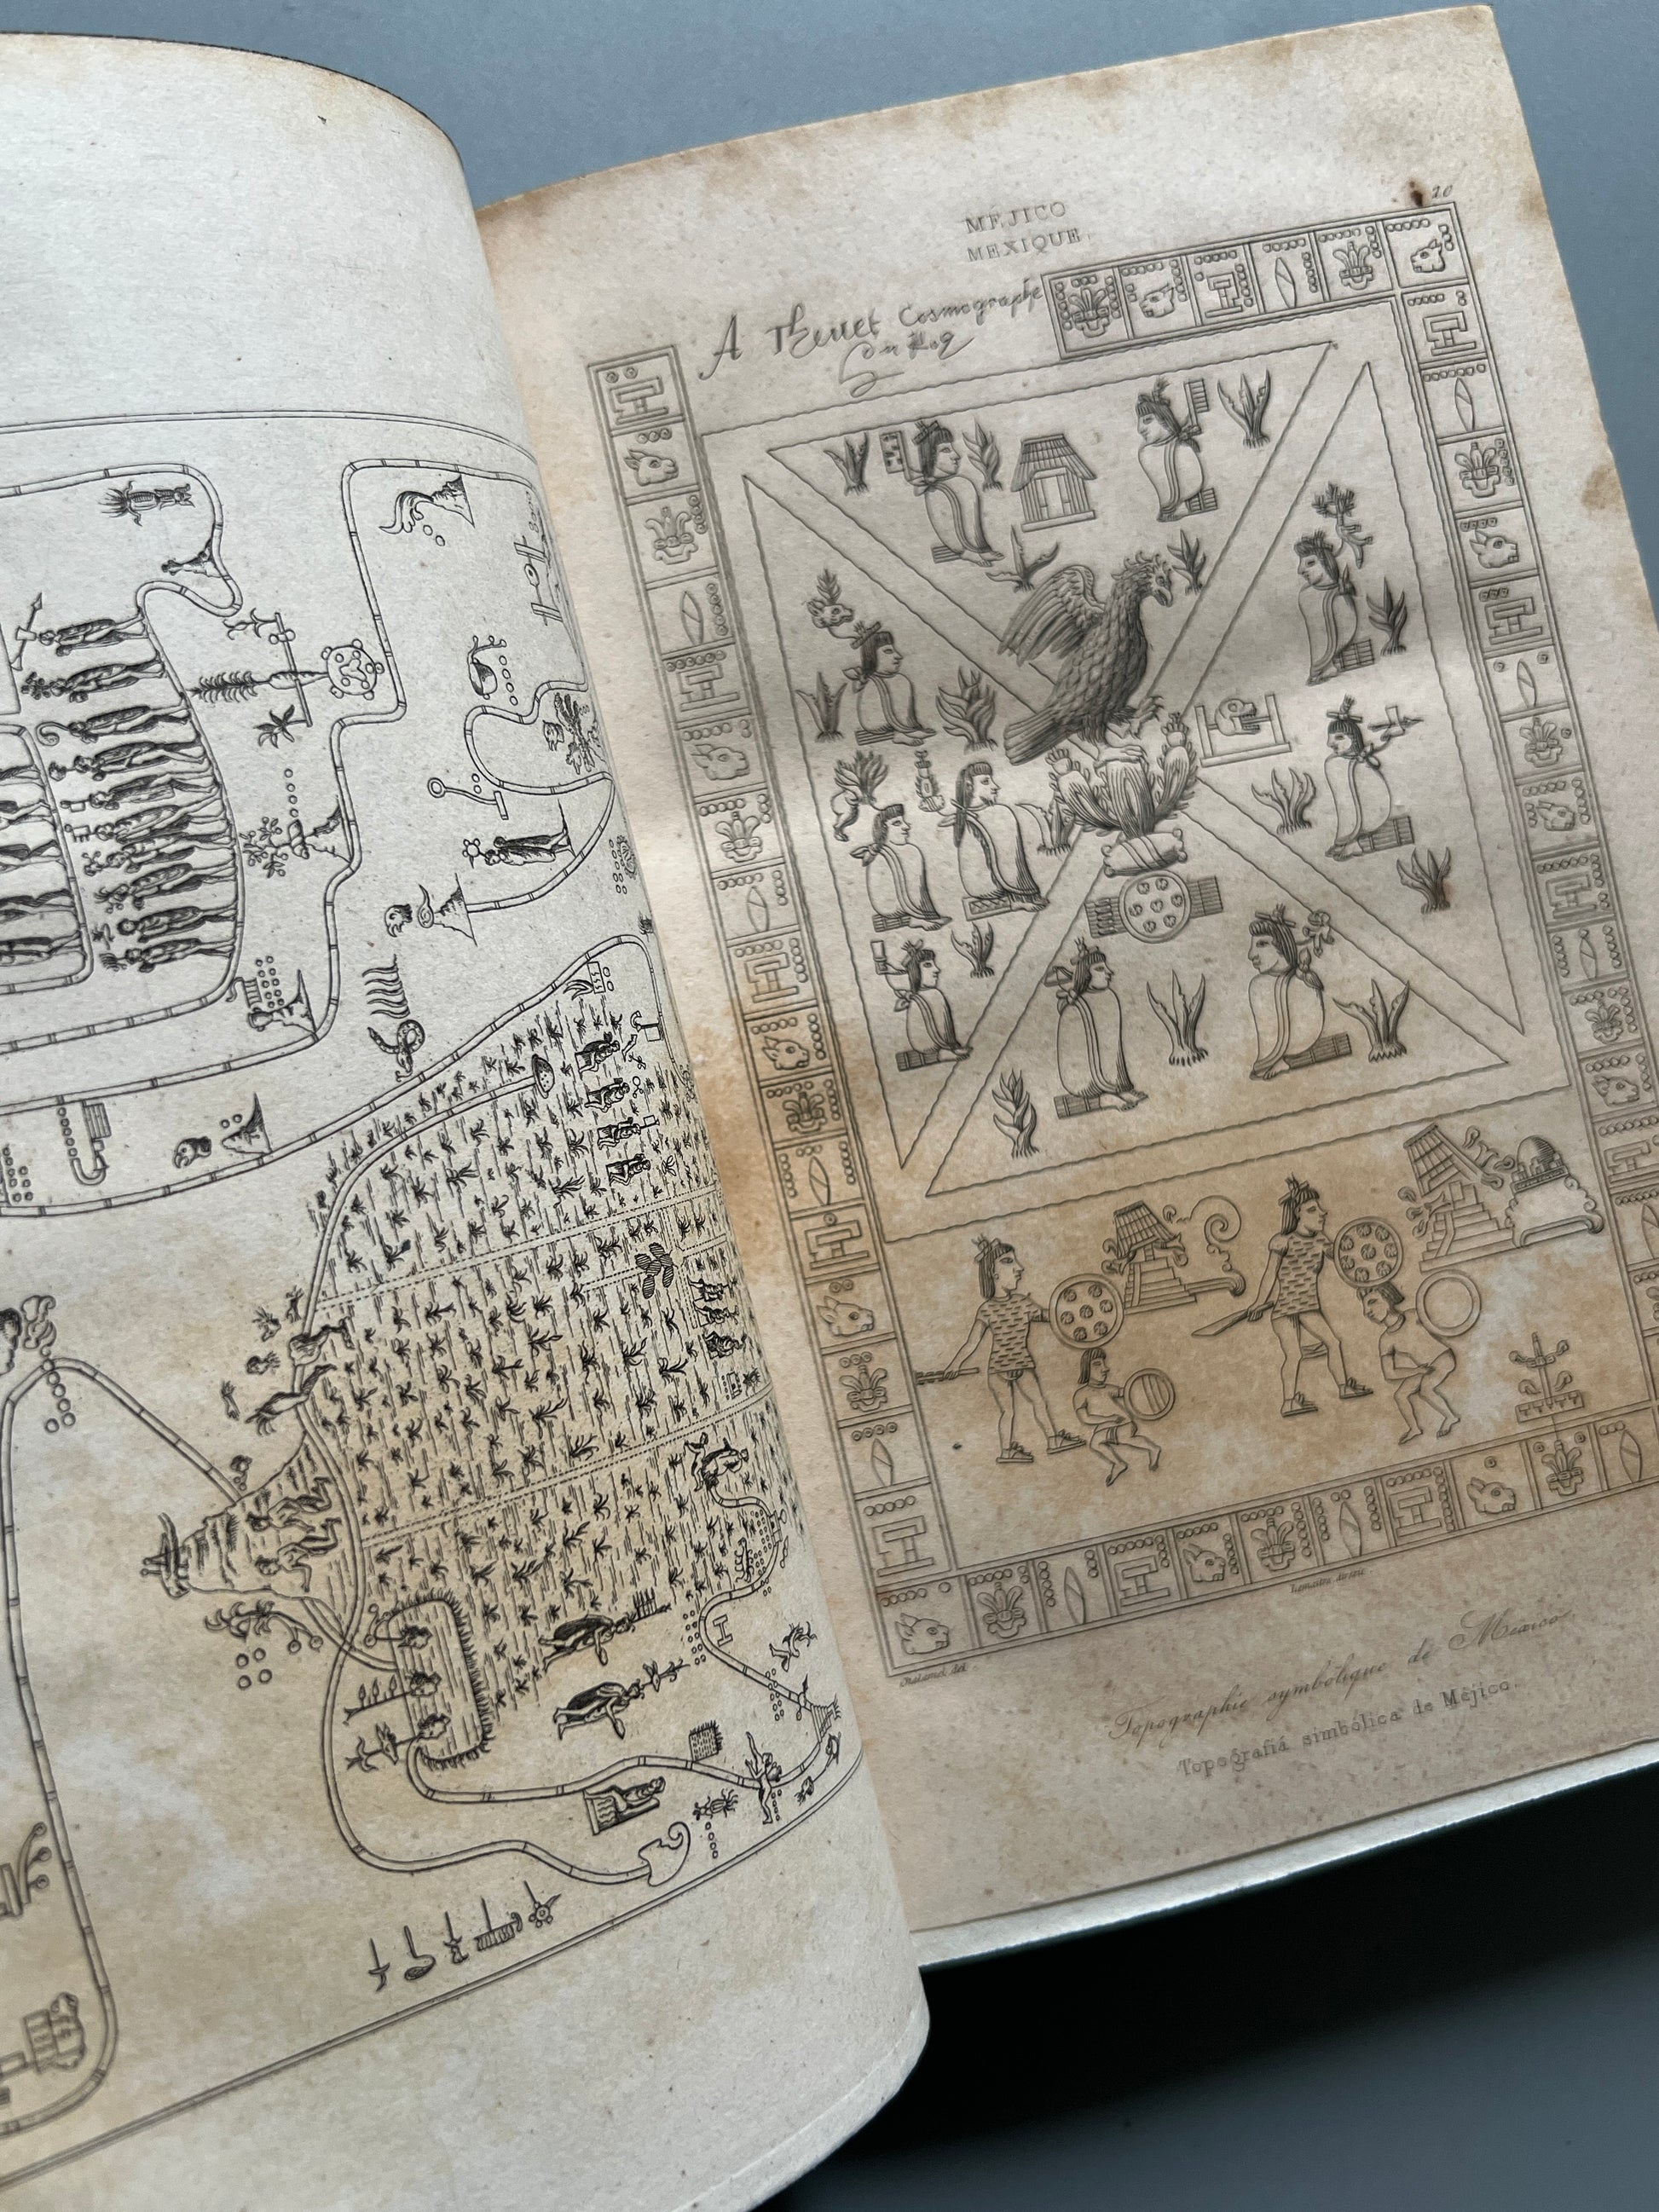 20
MÉJICO
MEXIQUE.
A Theuet Cosmographe
Du Roy
Lemaitre direx.
Topographie symbolique de Mexico
Topografiá simbólica de Méjico.